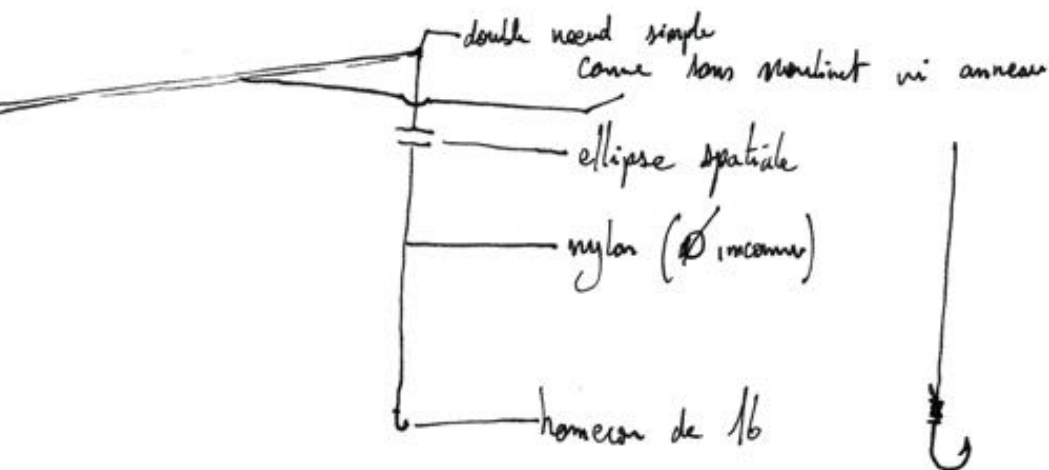 double nœud simple
canne sans moulinet ni anneau
ellipse spatiale
nylon (Ø inconnu)
hameçon de 16